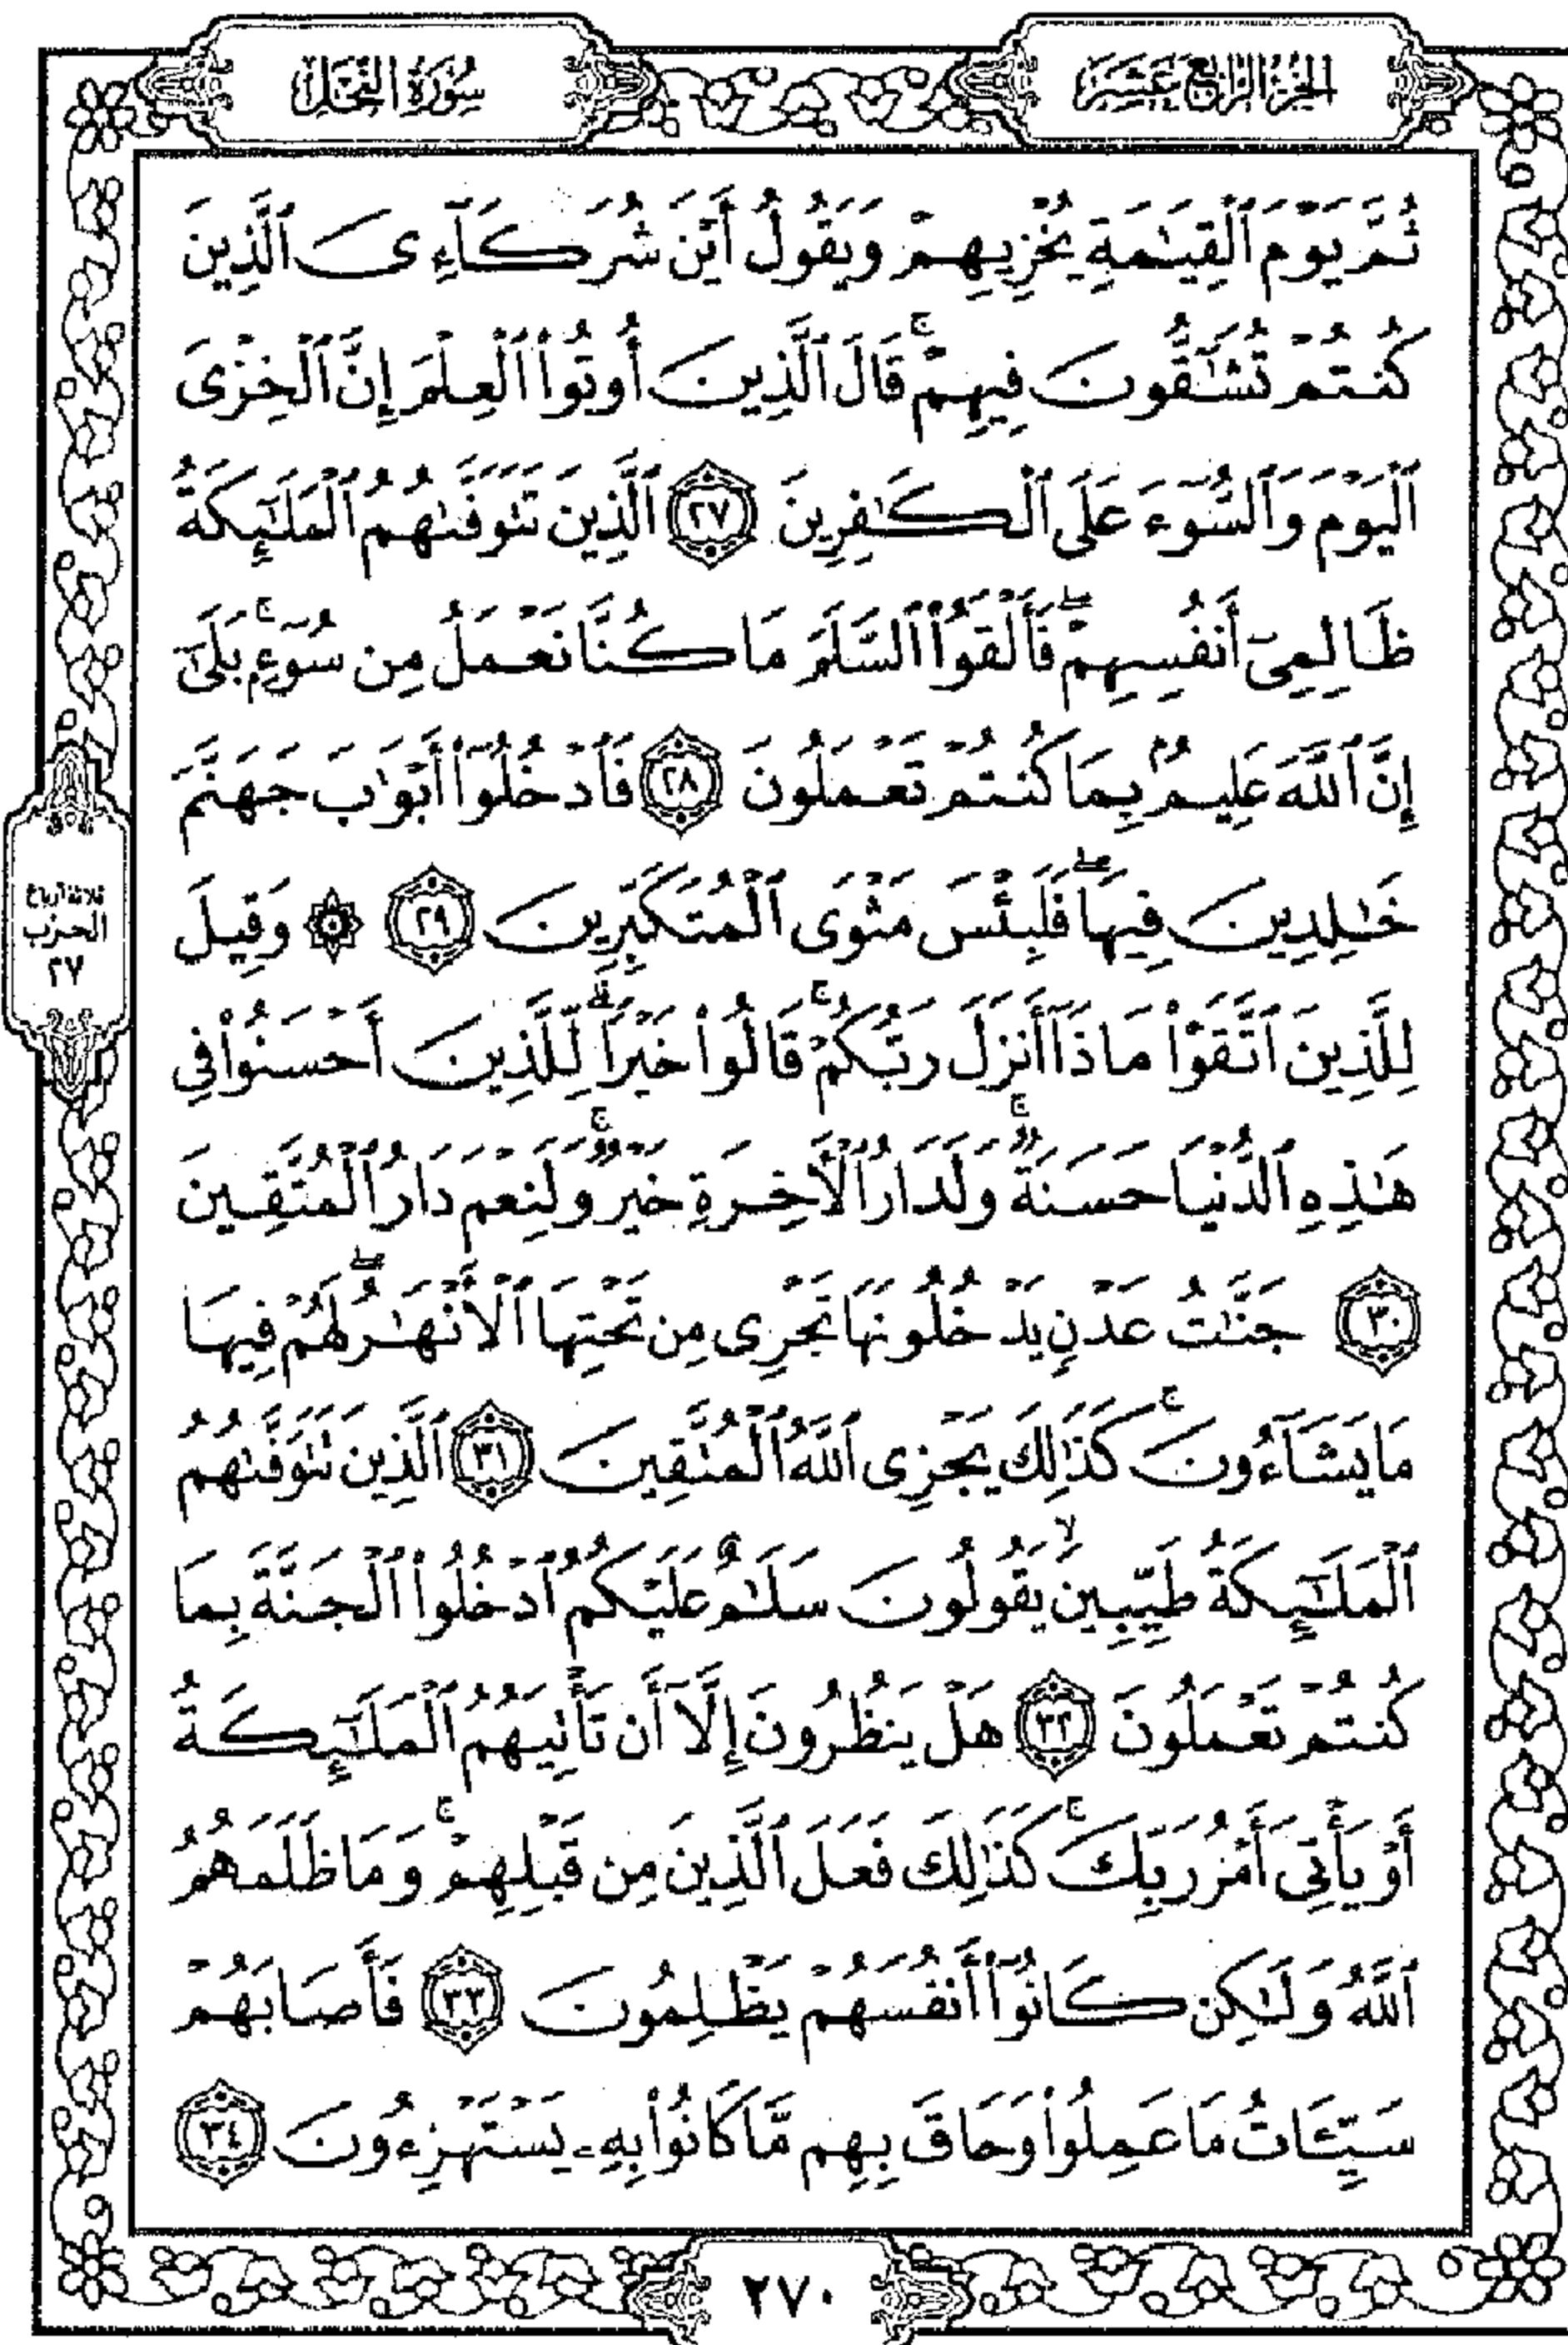 الجزء الرابع عشر
سورة النحل
ثُمَّ يَوْمَ ٱلْقِيَـٰمَةِ يُخْزِيهِمْ وَيَقُولُ أَيْنَ شُرَكَآءِىَ ٱلَّذِينَ
كُنتُمْ تُشَـٰٓقُّونَ فِيهِمْ ۚ قَالَ ٱلَّذِينَ أُوتُوا۟ ٱلْعِلْمَ إِنَّ ٱلْخِزْىَ
ٱلْيَوْمَ وَٱلسُّوٓءَ عَلَى ٱلْكَـٰفِرِينَ ٢٧ ٱلَّذِينَ تَتَوَفَّىٰهُمُ ٱلْمَلَـٰٓئِكَةُ
ظَالِمِىٓ أَنفُسِهِمْ ۖ فَأَلْقَوُا۟ ٱلسَّلَمَ مَا كُنَّا نَعْمَلُ مِن سُوٓءٍۭ ۚ بَلَىٰٓ
إِنَّ ٱللَّهَ عَلِيمٌۢ بِمَا كُنتُمْ تَعْمَلُونَ ٢٨ فَٱدْخُلُوٓا۟ أَبْوَٰبَ جَهَنَّمَ
خَـٰلِدِينَ فِيهَا ۖ فَلَبِئْسَ مَثْوَى ٱلْمُتَكَبِّرِينَ ٢٩ ۞ وَقِيلَ
لِلَّذِينَ ٱتَّقَوْا۟ مَاذَآ أَنزَلَ رَبُّكُمْ ۚ قَالُوا۟ خَيْرًا ۗ لِّلَّذِينَ أَحْسَنُوا۟ فِى
هَـٰذِهِ ٱلدُّنْيَا حَسَنَةٌ ۚ وَلَدَارُ ٱلْأَخِرَةِ خَيْرٌ ۚ وَلَنِعْمَ دَارُ ٱلْمُتَّقِينَ
٣٠ جَنَّـٰتُ عَدْنٍ يَدْخُلُونَهَا تَجْرِى مِن تَحْتِهَا ٱلْأَنْهَـٰرُ ۖ لَهُمْ فِيهَا
مَا يَشَآءُونَ ۚ كَذَٰلِكَ يَجْزِى ٱللَّهُ ٱلْمُتَّقِينَ ٣١ ٱلَّذِينَ تَتَوَفَّىٰهُمُ
ٱلْمَلَـٰٓئِكَةُ طَيِّبِينَ ۙ يَقُولُونَ سَلَـٰمٌ عَلَيْكُمُ ٱدْخُلُوا۟ ٱلْجَنَّةَ بِمَا
كُنتُمْ تَعْمَلُونَ ٣٢ هَلْ يَنظُرُونَ إِلَّآ أَن تَأْتِيَهُمُ ٱلْمَلَـٰٓئِكَةُ
أَوْ يَأْتِىَ أَمْرُ رَبِّكَ ۚ كَذَٰلِكَ فَعَلَ ٱلَّذِينَ مِن قَبْلِهِمْ ۚ وَمَا ظَلَمَهُمُ
ٱللَّهُ وَلَـٰكِن كَانُوٓا۟ أَنفُسَهُمْ يَظْلِمُونَ ٣٣ فَأَصَابَهُمْ
سَيِّـَٔاتُ مَا عَمِلُوا۟ وَحَاقَ بِهِم مَّا كَانُوا۟ بِهِۦ يَسْتَهْزِءُونَ ٣٤
ثلاثة أرباع
الحزب
٢٧
٢٧٠